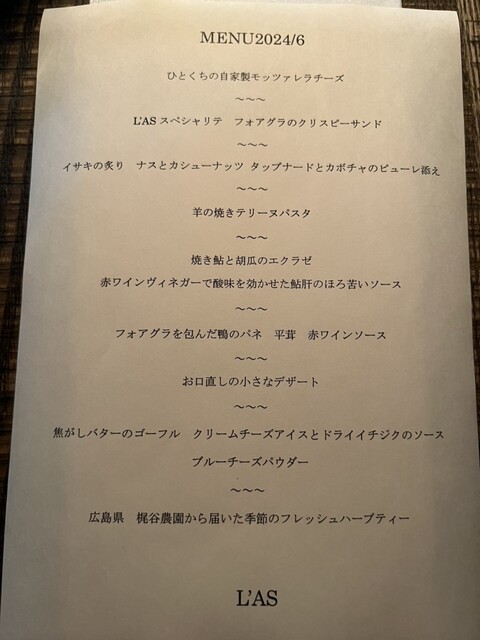 MENU2024/6
ひとくちの自家製モッツァレラチーズ
～～～
L'AS スペシャリテ　フォアグラのクリスピーサンド
～～～
イサキの炙り　ナスとカシューナッツ タップナードとカボチャのピューレ添え
～～～
羊の焼きテリーヌパスタ
～～～
焼き鮎と胡瓜のエクラゼ
赤ワインヴィネガーで酸味を効かせた鮎肝のほろ苦いソース
～～～
フォアグラを包んだ鴨のパネ　平茸　赤ワインソース
～～～
お口直しの小さなデザート
～～～
焦がしバターのゴーフル　クリームチーズアイスとドライイチジクのソース
ブルーチーズパウダー
～～～
広島県　梶谷農園から届いた季節のフレッシュハーブティー
L'AS